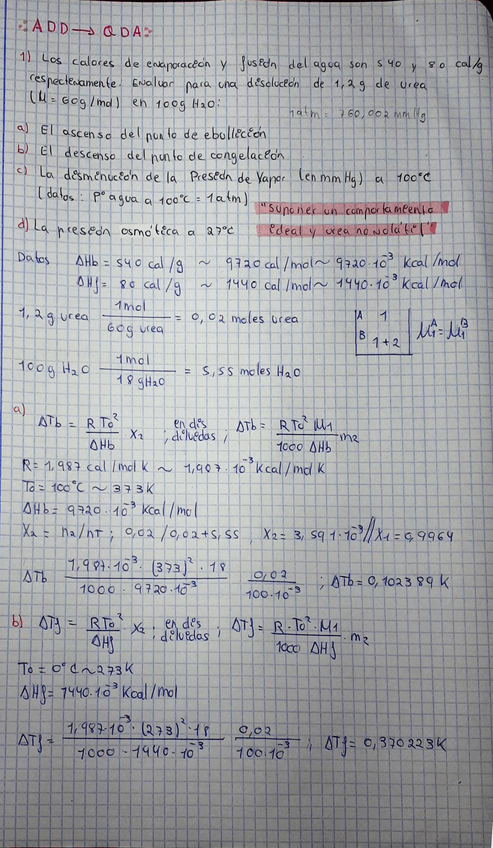 ADD → QDA
1) Los calores de evaporación y fusión del agua son 540 y 80 cal/g
respectivamente. Evaluar para una disolución de 1,2g de urea
(M = 60g/mol) en 100g H2O:
1atm = 760,002 mmHg
a) El ascenso del punto de ebollición
b) El descenso del punto de congelación
c) La disminución de la Presión de Vapor (en mmHg) a 100°C
(datos: P° agua a 100°C = 1atm)
"Suponer un comportamiento
d) La presión osmótica a 27°C ideal y urea no volátil"
Datos ΔHb = 540 cal/g ~ 9720 cal/mol ~ 9720·10⁻³ Kcal/mol
ΔHf = 80 cal/g ~ 1440 cal/mol ~ 1440·10⁻³ Kcal/mol
1,2g urea 1mol / 60g urea = 0,02 moles urea
A 1
B 1+2
μ₁ᴬ = μ₁ᴮ
100g H2O 1mol / 18gH2O = 5,55 moles H2O
a)
ΔTb = RTo² / ΔHb X2 ; en dis diluidas ; ΔTb = RTo² M1 / 1000 ΔHb m2
R = 1,987 cal/mol K ~ 1,987·10⁻³ Kcal/mol K
To = 100°C ~ 373K
ΔHb = 9720·10⁻³ Kcal/mol
X2 = n2/nT ; 0,02/0,02+5,55 , X2 = 3,591·10⁻³ // X1 = 0,9964
ΔTb 1,987·10⁻³·(373)²·18 / 1000·9720·10⁻³ 0,02 / 100·10⁻³ ; ΔTb = 0,102389 K
b) ΔTf = RTo² / ΔHf X2 ; en dis diluidas ; ΔTf = R·To²·M1 / 1000 ΔHf · m2
To = 0°C ~ 273K
ΔHf = 1440·10⁻³ Kcal/mol
ΔTf = 1,987·10⁻³·(273)²·18 / 1000·1440·10⁻³ 0,02 / 100·10⁻³ ; ΔTf = 0,370223K